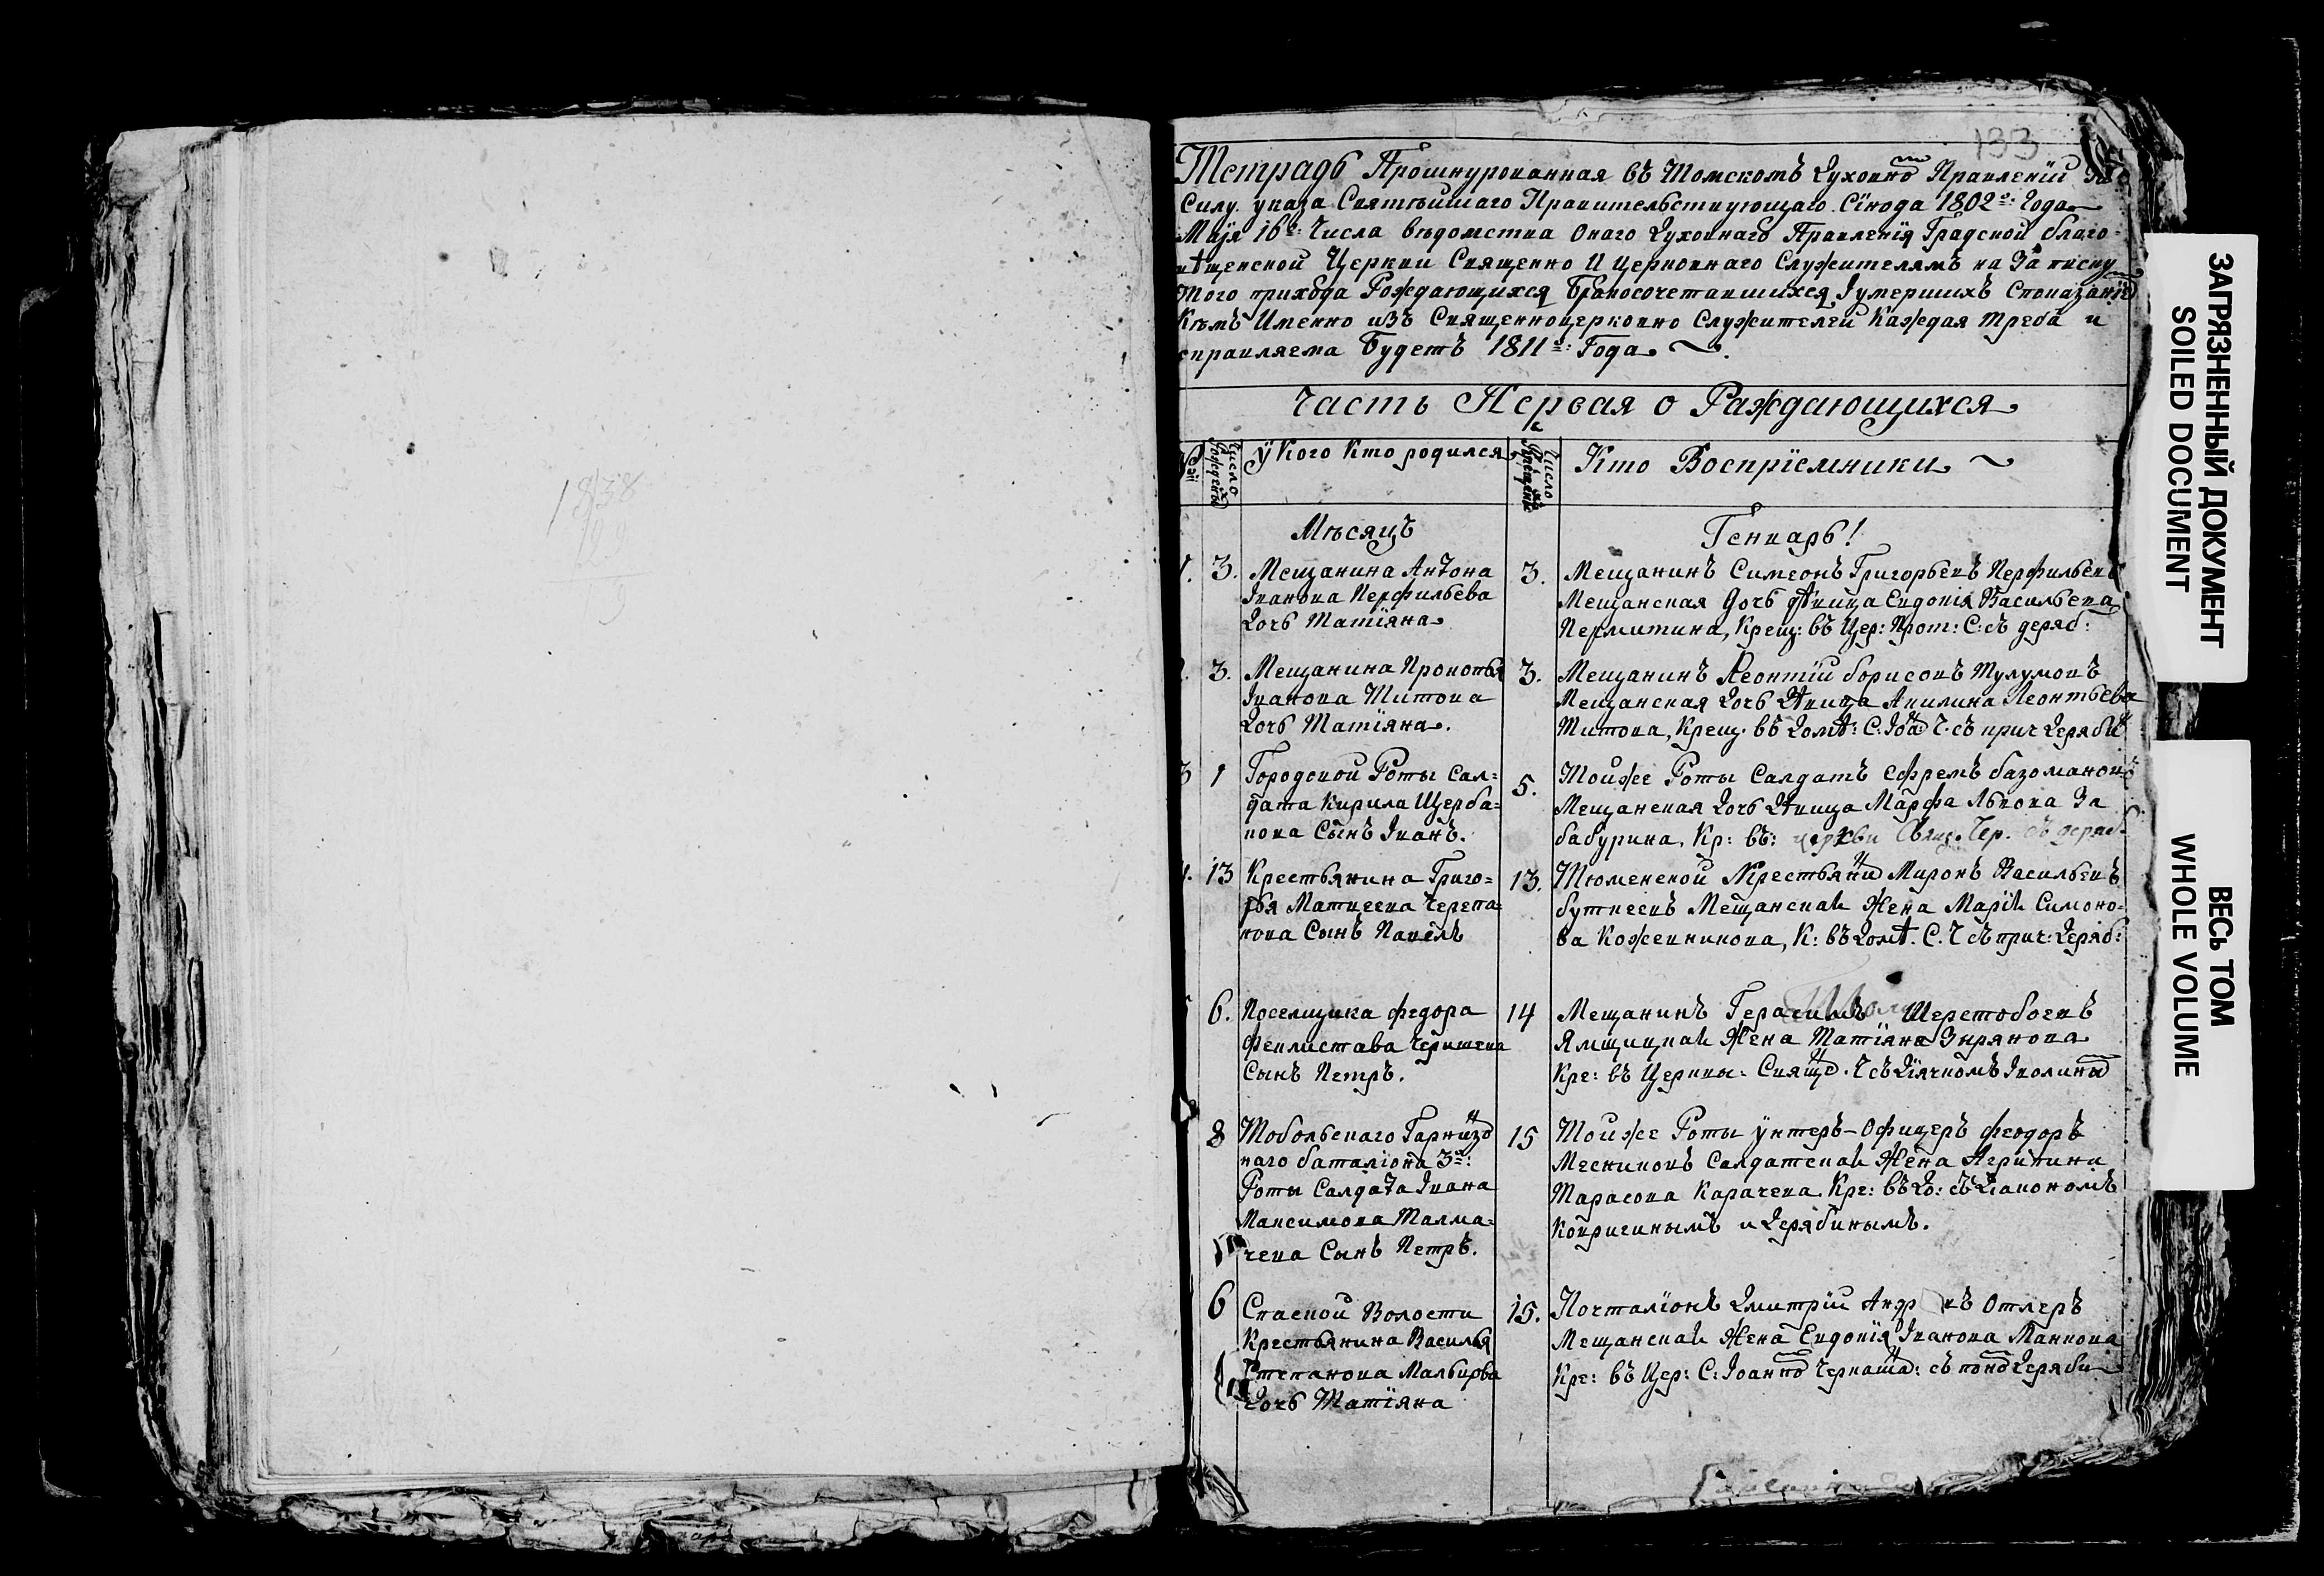 133
Тетрадь Прошнурованная въ Томскомъ Духовно Правленïи
Силу указа Святѣйшаго Правительствующаго Сïнода 1802г: Года
Маïя 16г: Числа вѣдомства Онаго Духовнаго Правленïя Градской благо-
вѣщенской Церкви Священно И церковнаго Служителямъ на Записку
Того прихода Рождающихся Бракосочетавшихся, Iумершихъ Споказанïе
Кѣмъ Именно изъ Священноцерковно Служителей Каждая треба и
справляема Будетъ 1811г: Года
Часть Первая о Раждающихся
Число Рожденых
У Кого Кто родился
Число Крещеных
Кто Воспрïемники
Мѣсяцъ
Генварь!
1. 3. Мещанина Антона
Iванова Перфильева
Дочь Татïяна
3. Мещанинъ Симеонъ Григорьевъ Перфильевъ
Мещанская дочь дѣвица Евдокiя Васильева
Пермитина, Крещ: въ Цер: Прот: С: съ деряб:
3. Мещанина Прокопья
Iванова Титова
Дочь Татïяна.
3. Мещанинъ Леонтïй борисовъ Тулумовъ
Мещанская Дочь Дѣвица Акилина Леонтьева
Титова, Крещ. въ Домѣ: С: Ч. съ прич Деряби
3 1 Городовой Роты Сал-
дата Кирила Щерба-
кова Сынъ Iванъ.
5. Тойже Роты Салдатъ Ефремъ
Мещанская Дочь Дѣвица Марфа Львова За
бабурина, Кр: въ: церкви Свящ. Чер. съ деряб.
4. 13 Крестьянина Григо-
рья Матвеева Черепа-
нова Сынъ Павелъ
13. Тюменской Крестьяни Миронъ Васильевъ
бутвеевъ Мещанская Жена Марïя Симоно-
ва Кожевникова, К: въ Домѣ. С. Ч съ прич: Деряб:
6. Поселщика федора
Сынъ Петръ.
14 Мещанинъ Герасимъ Шерстобоевъ
Ямщицкая Жена Татïяна Зырянова
Кре: въ Церквы. Свяще. Ч съ Дïячкомъ
8 Тобольскаго Гарнизо
наго баталïона 3й:
Роты Салдата Iвана
Максимова Талма-
чева Сынъ Петръ.
15 Тойже Роты Унтеръ-Офицеръ феодоръ
Месниковъ Салдатская Жена Агрипина
Тарасова Карачева. Кре: въ До: съ Дïакономъ
Копригинымъ и Дерябинымъ.
6 Спаской Волости
Крестьянина Василья
Степанова Мальцова
Дочь Татïяна
15. Почталïонъ Дмитрïй Андр въ Отлеръ
Мещанская Жена Евдокïя Iванова Манкова
Кре: въ Цер: С: съ поно Деряби
ЗАГРЯЗНЕННЫЙ ДОКУМЕНТ
SOILED DOCUMENT
ВЕСЬ ТОМ
WHOLE VOLUME